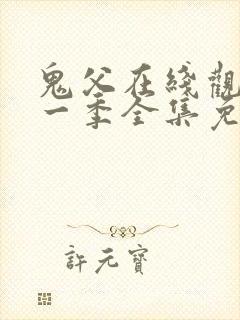 鬼父在綫觀
一季全集免
許元寶